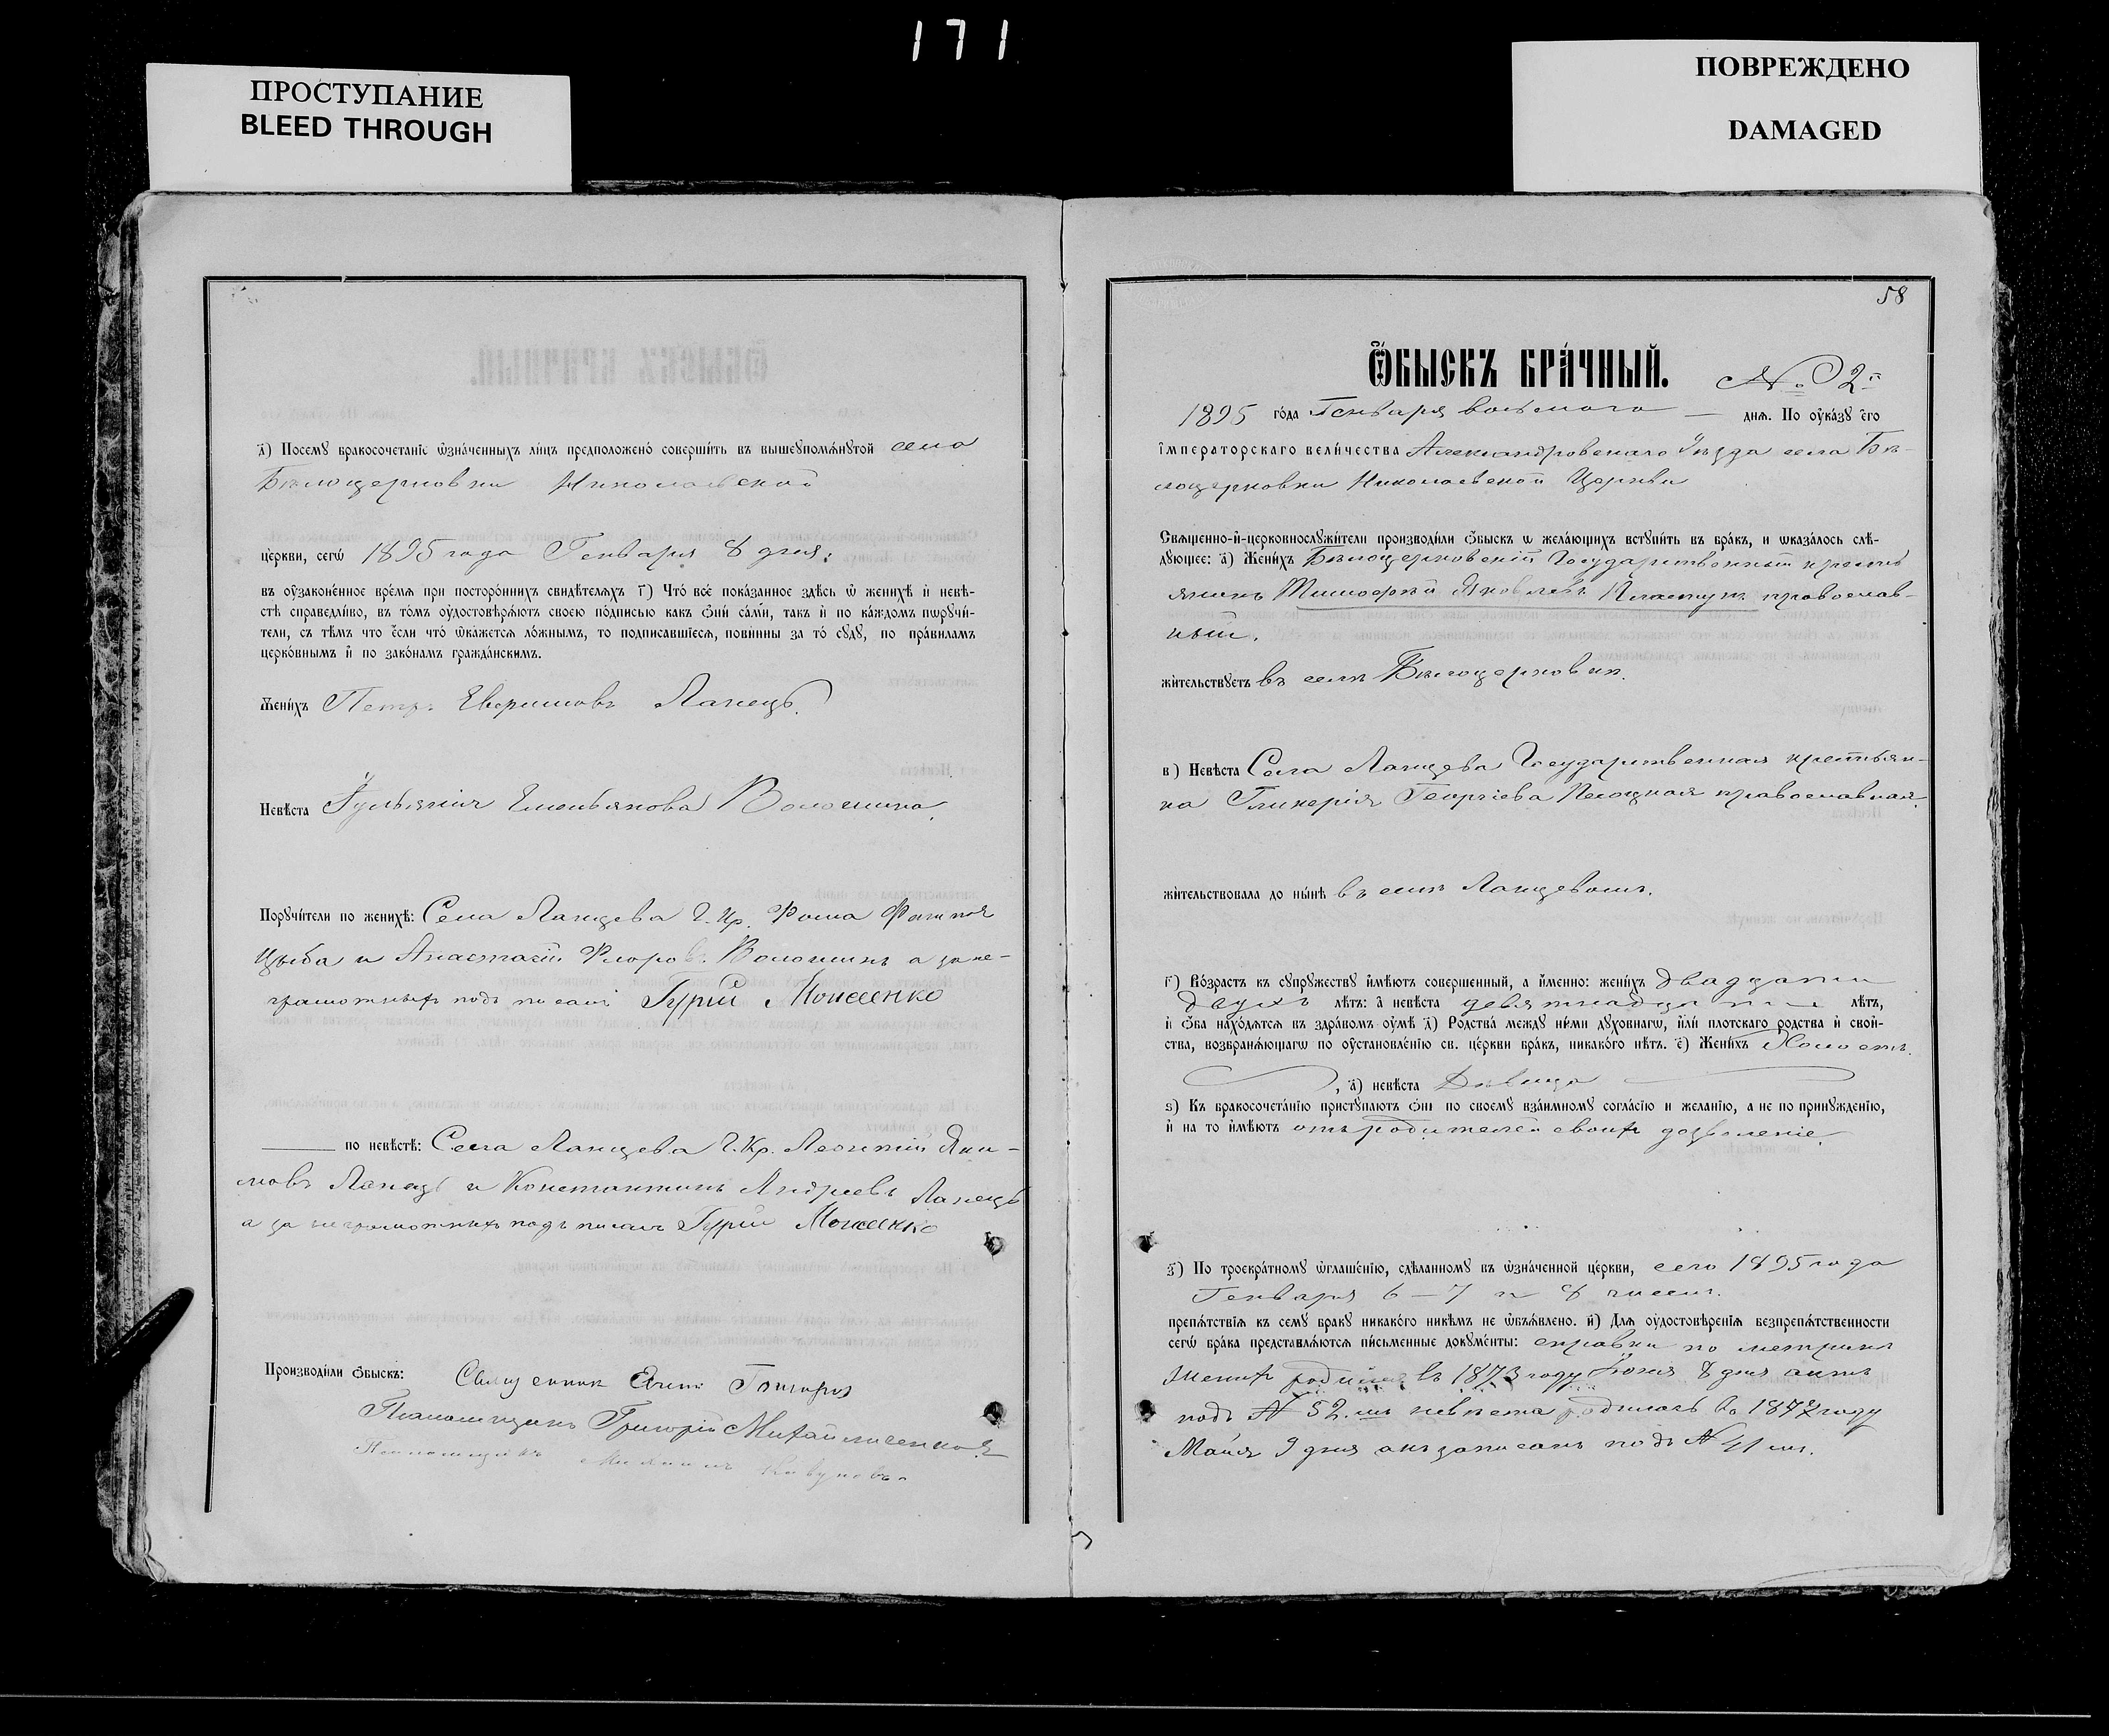 171
ПРОСТУПАНИЕ
BLEED THROUGH
ПОВРЕЖДЕНО
DAMAGED
д) Посему бракосочетанїе ѡзначенныхъ лицъ предположено совершить въ вышеупомянутой села
Бѣлоцерковки Николаевской
церкви, сегѡ 1895 года Генваря 8 дня:
въ оузаконенное время при постороннихъ свидѣтеляхъ г) Что все показанное здѣсь ѡ женихѣ и невѣ-
стѣ справедливо, въ томъ оудостовѣряютъ своею подписью какъ ѻни сами, такъ и по каждомъ пѡручи-
тели, съ тѣмъ что если что ѡкажется ложнымъ, то подписавшїеся, повинны за то суду, по правиламъ
церковнымъ и по законамъ гражданскимъ.
Женихъ Петръ Евфимовъ Ланецъ.
Невѣста Іульянія Емельянова Волошина.
Поручители по женихѣ: Села Ланцева Г. Кр. Фома
Цыба и Анастасій Флоров. Волошинъ а за не-
грамотныхъ подъписалъ Гурій Моисеенко
по невѣстѣ: Села Ланцева Г. Кр. Леонтій Яки-
мовъ Ланецъ и Константинъ Андреевъ Ланецъ
а за неграмотныхъ подъписалъ Гурій Моисеенко
Производили ѻбыскъ: Священник
Псаломщикъ Григорій
Псаломщикъ
58
Ѻбыскъ брачный. № 2й
1895 года Генваря восьмого дня. По оуказу его
императорскаго величества Александровскаго Уѣзда села Бѣ-
лоцерковки Николаевской Церкви
Священно-и-церковнослужители производили ѻбыскъ ѡ желающихъ вступить въ бракъ, и ѡказалось слѣ-
дующее: а) Женихъ Бѣлоцерковскій Государственный кресть
янинъ Тимофей Яковлевъ Пластунъ православ-
ный.
жительствуетъ въ селѣ Бѣлоцерковкѣ.
в) Невѣста Села Ланцева Государственная крестьян-
ка Гликерія Георгіева православная.
жительствовала до нынѣ въ селѣ Ланцевомъ.
г) Возрастъ къ супружеству имѣютъ совершенный, а именно: женихъ двадцати
двухъ лѣтъ: а невѣста девятнадцати лѣтъ,
и ѻба находятся въ здравомъ оумѣ д) Родства между ними духовнагѡ, или плотскаго родства и свой-
ства, возбраняющагѡ по оустановленїю св. церкви бракъ, никакого нѣтъ. е) Женихъ Холостъ.
, а) невѣста Дѣвица
ѕ) Къ бракосочетанїю приступаютъ ѻни по своему взаимному согласїю и желанїю, а не по принужденїю,
и на то имѣютъ отъ родителей своихъ дозволеніе.
з) По троекратному ѡглашенїю, сдѣланному въ ѡзначенной церкви, сего 1895 года
Генваря 6 – 7 и 8 чиселъ.
препятствїя къ сему браку никакого никѣмъ не ѡбъявлено. и) Для оудостовѣренїя безпрепятственности
сегѡ брака представляются письменные документы: справки по метрикѣ
Женихъ родился въ 1873 году Іюня 8 дня
подъ № 52.мъ невѣста родилась въ году
Майя 9 дня актъ записанъ подъ № 41 мъ.